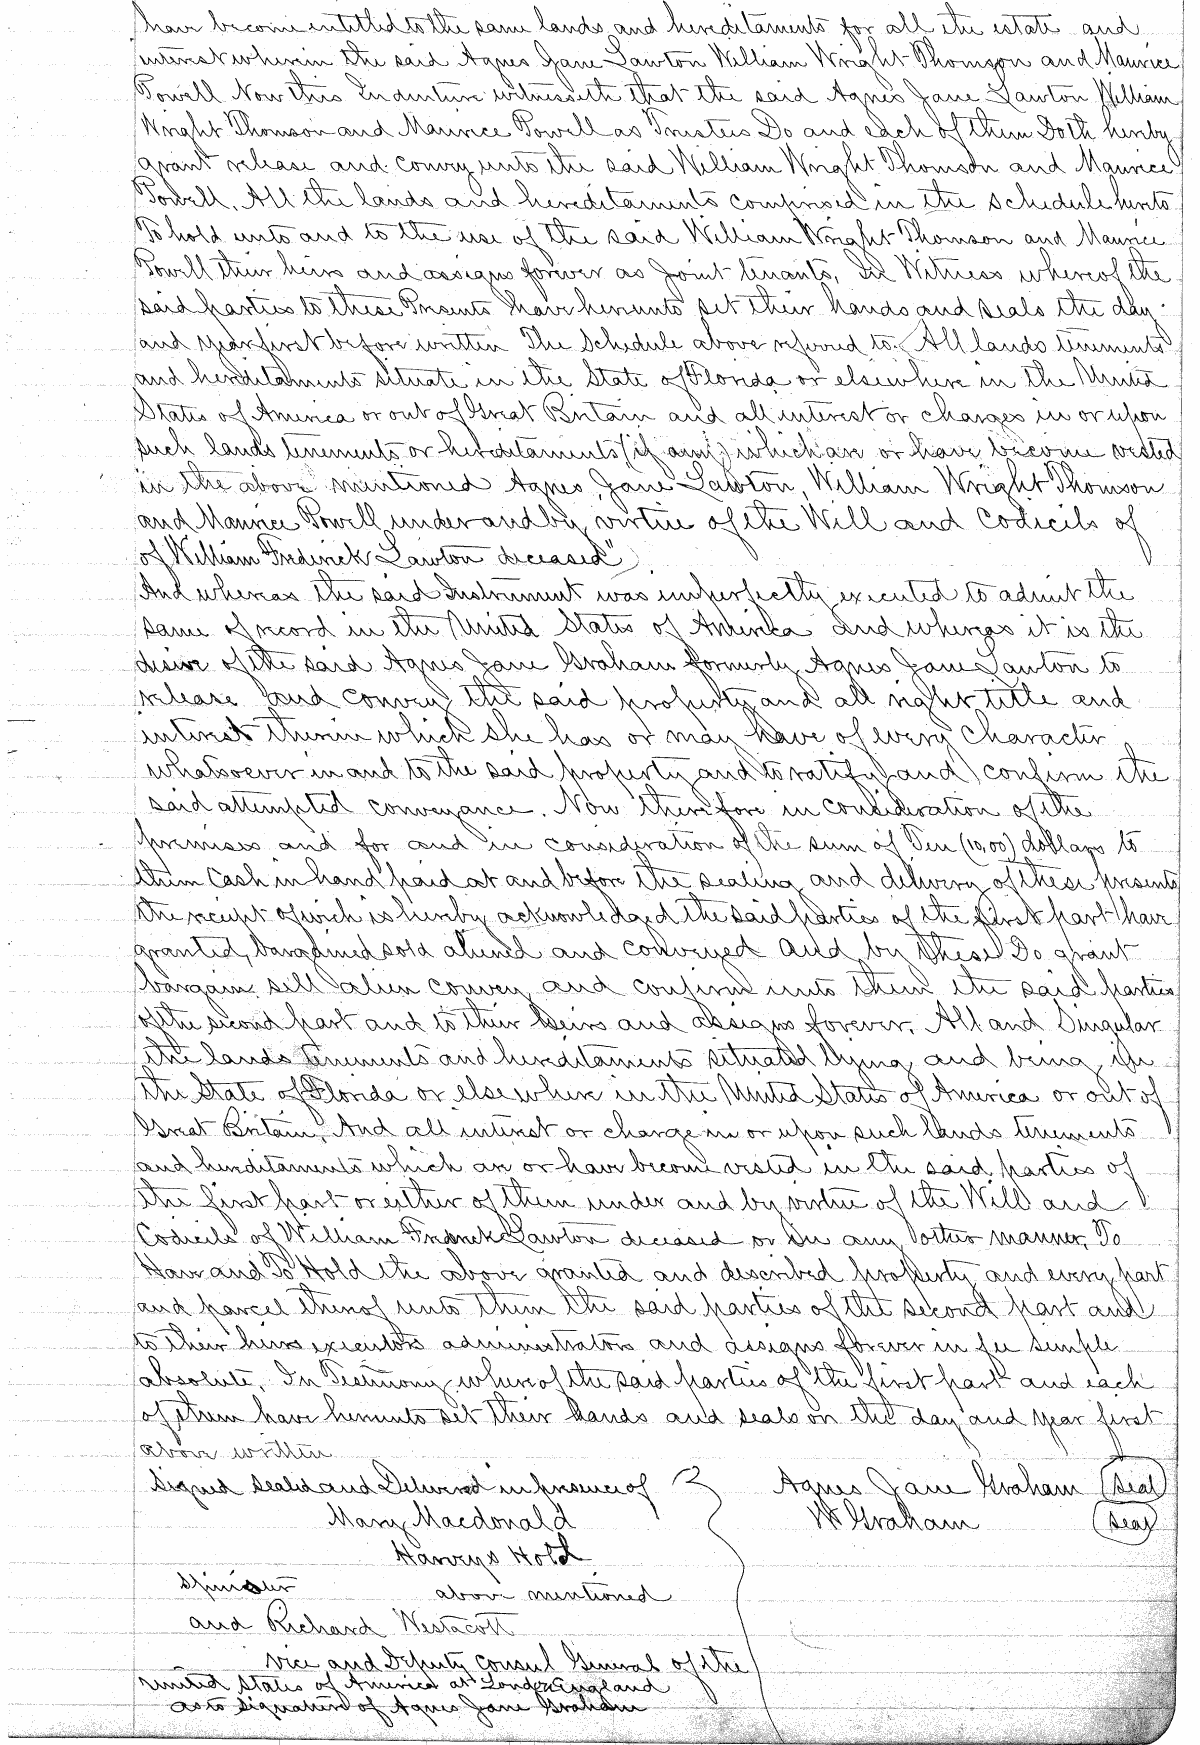 have become entitled to the same lands and hereditaments for all the estate and
interest wherein the said Agnes Jane Lawton William Wright Thomson and Maurice
Powell Now this Indenture witnesseth that the said Agnes Jane Lawton William
Wright Thomson and Maurice Powell as Trustees Do and each of them Doth hereby
grant release and convey unto the said William Wright Thomson and Maurice
Powell. All the lands and hereditaments comprised in the schedule hereto
To hold unto and to the use of the said William Wright Thomson and Maurice
Powell their heirs and assigns forever as Joint tenants, In Witness whereof the
said parties to these Presents have hereunto set their hands and seals the day
and year first before written The Schedule above referred to. All lands tenements
and hereditaments situate in the State of Florida or elsewhere in the United
States of America or out of Great Britain and all interest or charges in or upon
such lands tenements or hereditaments (if any) which are or have become vested
in the above mentioned Agnes Jane Lawton, William Wright Thomson
and Maurice Powell under and by virtue of the Will and Codicils of
of William Frederick Lawton deceased"
And whereas the said Instrument was imperfectly executed to admit the
same of record in the United States of America and whereas it is the
desire of the said Agnes Jane Graham formerly Agnes Jane Lawton to
release and convey the said property and all right title and
interest therein which she has or may have of every Character
whatsoever in and to the said property and to ratify and confirm the
said attempted conveyance. Now therefore in consideration of the
premises and for and in consideration of the sum of Ten (10,00) dollars to
them Cash in hand paid at and before the sealing and delivery of these presents
the receipt of wich is hereby acknowledged the said parties of the first part have
granted, bargained sold aliened and conveyed and by these Do grant
bargain sell alien convey and confirm unto them the said parties
of the second part and to their heirs and assigns forever, All and Singular
the lands tenements and hereditaments situated lying and being in
the State of Florida or elsewhere in the United States of America or out of
Great Britain, And all interest or charge in or upon such lands tenements
and hereditaments which are or have become vested in the said parties of
the first part or either of them under and by virtue of the Will and
Codicils of William Fredrick Lawton deceased or in any other manner, To
Have and To Hold the above granted and described property and every part
and parcel thereof unto them the said parties of the second part and
to their heirs executors administrators and assigns forever in fee simple
absolute. In Testimony whereof the said parties of the first part and each
of them have hereunto set their hands and seals on the day and year first
above written
Signed Sealed and Delivered in presence of Agnes Jane Graham (Seal)
Mary Macdonald W Graham (Seal)
Harveys Hotel
Spinster above mentioned
and Richard Westacott
Vice and Deputy Consul General of the
United States of America at London England
as to signature of Agnes Jane Graham